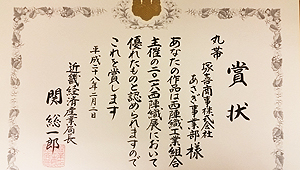 賞状
九帯
塚喜商事株式会社
あざぎ事業部 様
あなたの作品は西陣織工業組合
主催の二〇一六西陣織展において
優れたものと認められますので
これを賞します
平成二十八年二月二日
近畿経済産業局長
関 総一郎